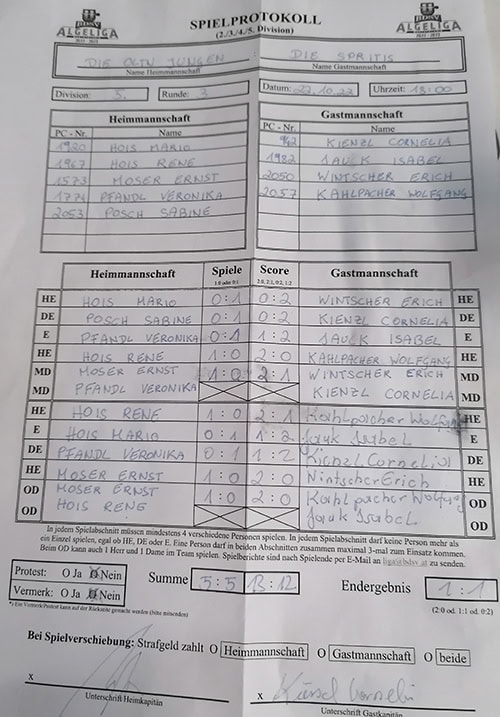 ALGELIGA
SPIELPROTOKOLL
(2./3./4./5. Division)
ALGELIGA
DIE OLTN JUNGEN : DIE SPRITIS
Name Heimmannschaft Name Gastmannschaft
Division: 5. Runde: 3 Datum: 22.10.22 Uhrzeit: 18:00
Heimmannschaft Gastmannschaft
PC - Nr. Name PC - Nr. Name
1920 HOIS MARIO 942 KIENZL CORNELIA
1967 HOIS RENE 1982 JAUK ISABEL
1573 MOSER ERNST 2050 WINTSCHER ERICH
1774 PFANDL VERONIKA 2057 KAHLPACHER WOLFGANG
2053 POSCH SABINE
Heimmannschaft Spiele Score Gastmannschaft
1:0 oder 0:1 2:0, 2:1, 0:2, 1:2
HE HOIS MARIO 0:1 0:2 WINTSCHER ERICH HE
DE POSCH SABINE 0:1 0:2 KIENZL CORNELIA DE
E PFANDL VERONIKA 0:1 1:2 JAUK ISABEL E
HE HOIS RENE 1:0 2:0 KAHLPACHER WOLFGANG HE
MD MOSER ERNST 1:0 2:1 WINTSCHER ERICH MD
MD PFANDL VERONIKA KIENZL CORNELIA MD
HE HOIS RENE 1:0 2:1 Kahlpacher Wolfgang HE
E HOIS MARIO 0:1 1:2 Jauk Isabel E
DE PFANDL VERONIKA 0:1 1:2 Kienzl Cornelia DE
HE MOSER ERNST 1:0 2:0 Wintscher Erich HE
OD MOSER ERNST 1:0 2:0 Kahlpacher Wolfgang OD
OD HOIS RENE Jauk Isabel OD
In jedem Spielabschnitt müssen mindestens 4 verschiedene Personen spielen. In jedem Spielabschnitt darf keine Person mehr als
ein Einzel spielen, egal ob HE, DE oder E. Eine Person darf in beiden Abschnitten zusammen maximal 3-mal zum Einsatz kommen.
Beim OD kann auch 1 Herr und 1 Dame im Team spielen. Spielberichte sind nach Spielende per E-Mail an liga@bdsv.at zu senden.
Protest: O Ja O Nein Summe 5:5 13:12 Endergebnis 1:1
Vermerk: O Ja O Nein (2:0 od. 1:1 od. 0:2)
*) Ein Vermerk/Protest kann auf der Rückseite gemacht werden (bitte mitsenden)
Bei Spielverschiebung: Strafgeld zahlt O Heimmannschaft O Gastmannschaft O beide
x x Kienzl Cornelia
Unterschrift Heimkapitän Unterschrift Gastkapitän